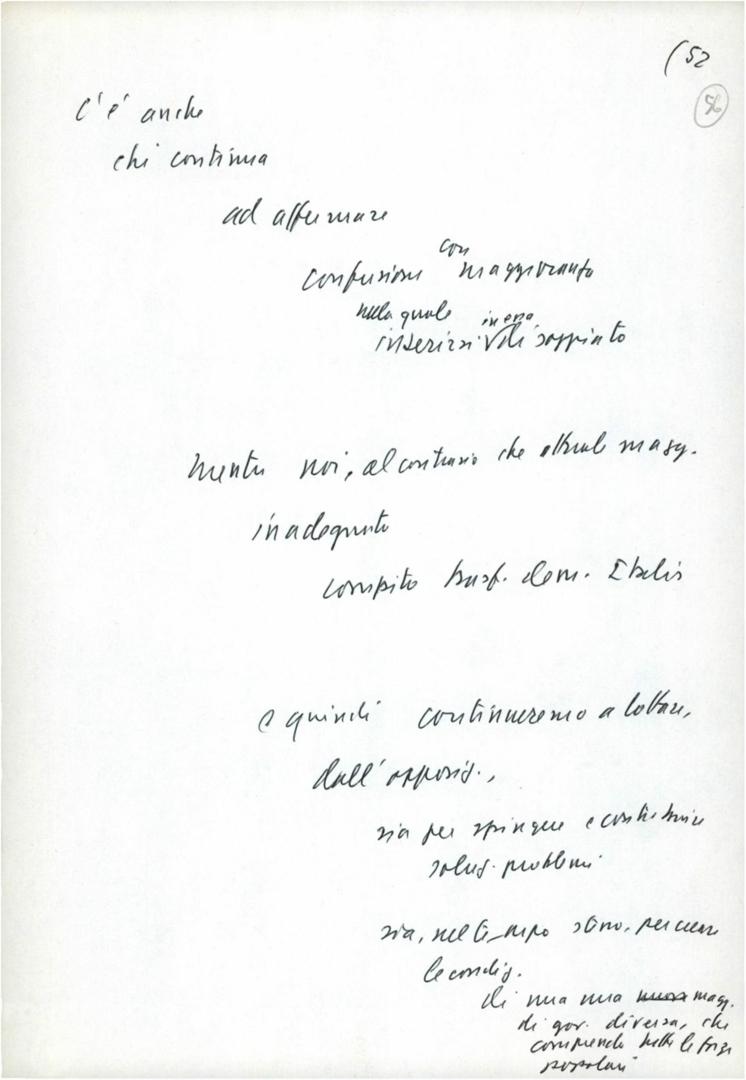 (52
56
C'è anche
chi continua
ad affermare
con
confusione maggioranza
nella quale in essa
inserirsi di soppiatto
mentre noi, al contrario che attuale magg.
inadeguata
compito trasf. dem. Italia
e quindi continueremo a lottare,
dall'opposiz.,
sia per spingere e contribuire
soluz. problemi
sia, nel tempo stesso, per creare
le condiz.
di una magg.
di gov. diversa, che
comprenda tutte le forze
popolari